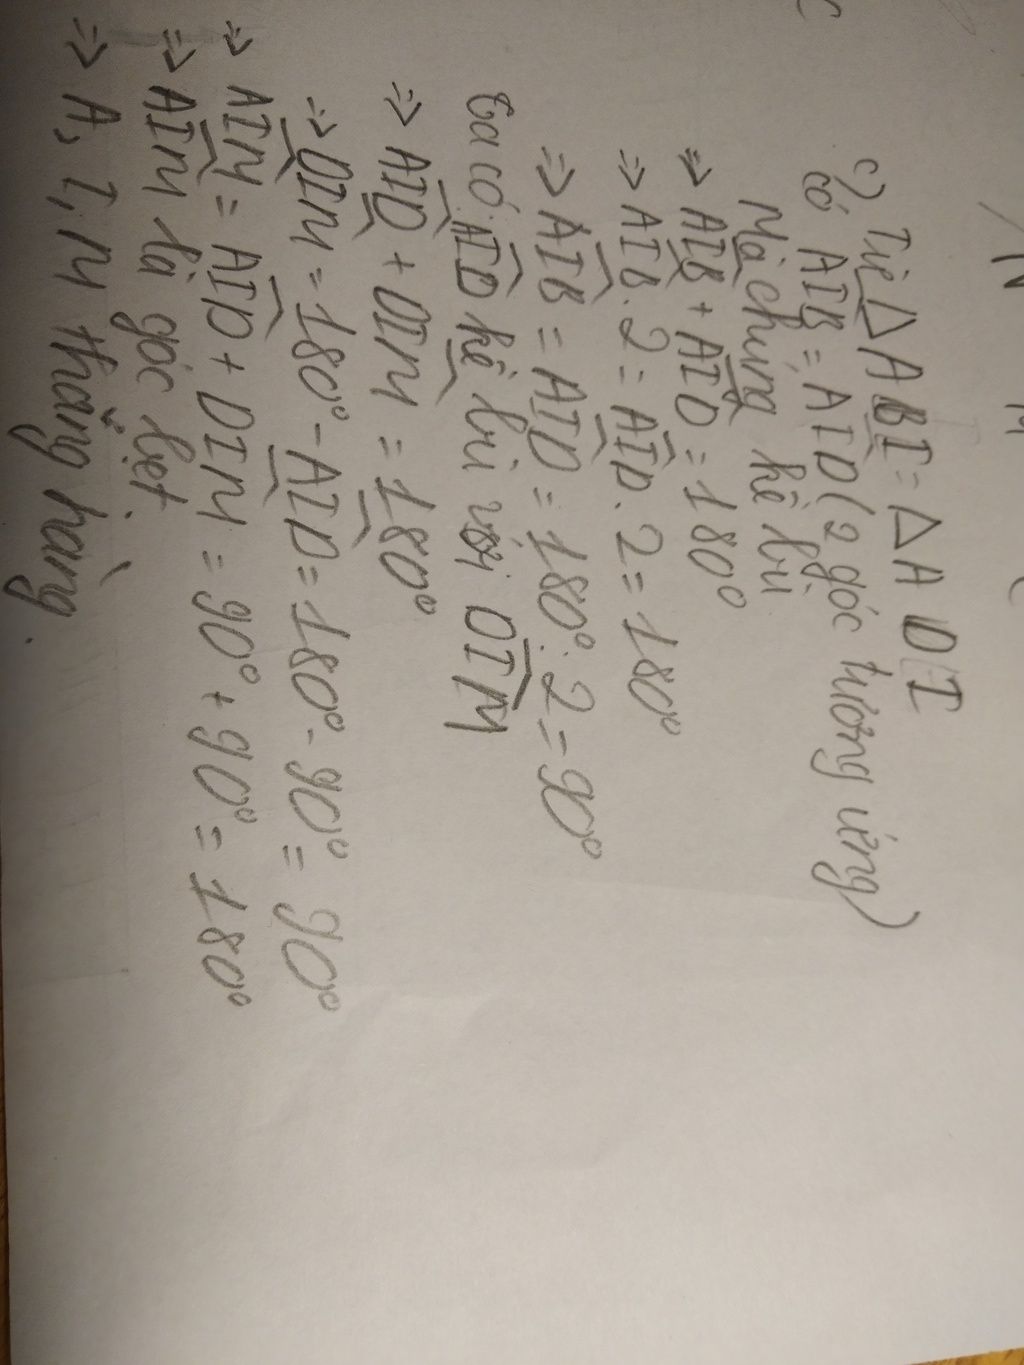 c) Từ △ABI = △ADI
có AIB = AID (2 góc tương ứng)
Mà chúng kề bù
=> AIB + AID = 180°
=> AIB . 2 = AID . 2 = 180°
=> AIB = AID = 180° : 2 = 90°
Ta có AID kề bù với DIM
=> AID + DIM = 180°
=> DIM = 180° - AID = 180° - 90° = 90°
=> AIM = AID + DIM = 90° + 90° = 180°
=> AIM là góc bẹt
=> A, I, M thẳng hàng.